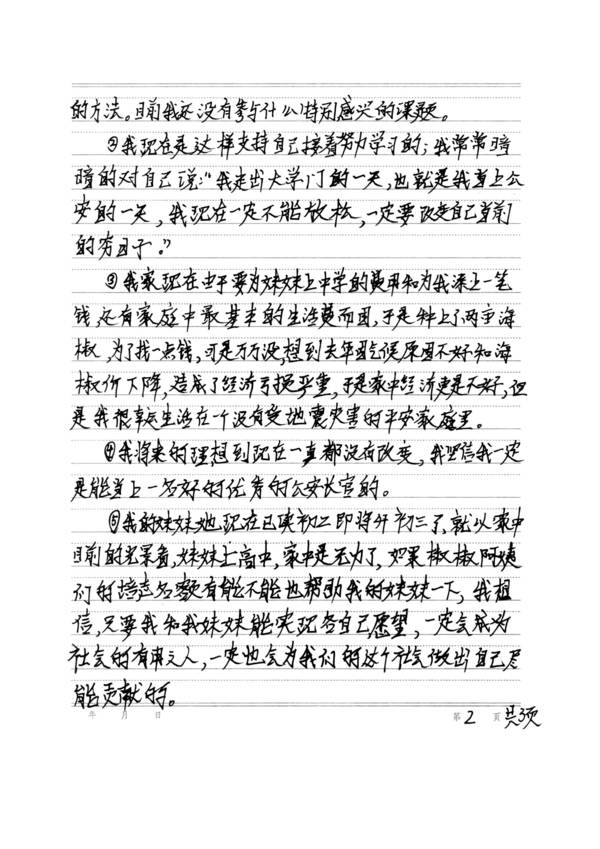 的方法。目前我还没有参与什么特别感兴的课题。
②我现在是这样支持自己接着努力学习的;我常常暗
暗的对自己说:“我走出大学门的一天,也就是我当上公
安的一天,我现在一定不能放松,一定要改变自己当前
的穷日子。”
③我家现在由于要为妹妹上中学的费用和为我深上一笔
钱,还有家庭中最基本的生活费而困,于是种上了两亩海
椒,为了找一点钱,可是万万没想到去年因气候原因不好和海
椒价下降,造成了经济亏损严重,于是家中经济更是不好,但
是我很幸运生活在一个没有受地震灾害的平安家庭里。
④我将来的理想到现在一直都没有改变,我坚信我一定
是能当上一名好的优秀的公安长官的。
⑤我的妹妹她现在已读初二即将升初三了,就以家中
目前的光景看,妹妹上高中,家中是无力了,如果椒椒阿姨
们的培声名额有能不能也帮助我的妹妹一下,我相
信,只要我和我妹妹能实现各自己愿望,一定会成为
社会的有用之人,一定也会为我们的这个社会做出自己尽
能贡献的。
年 月 日 第 2 页 共3页